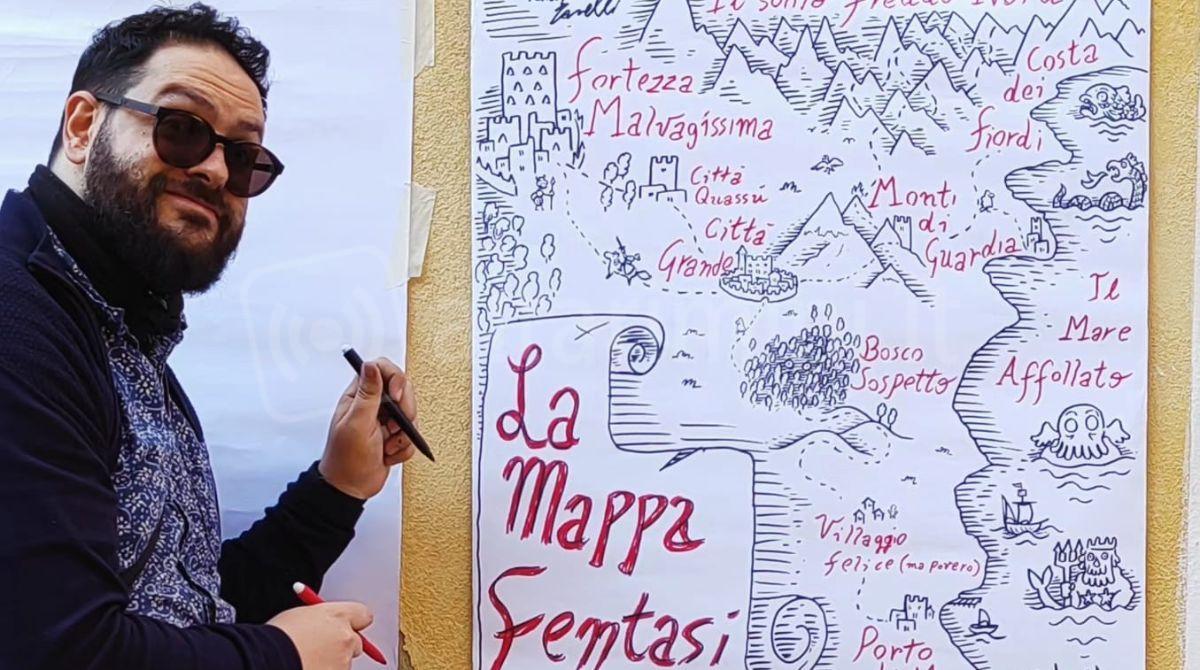 Il solito freddo Nord
Fortezza
Malvagissima
Costa
dei
fiordi
Città
Quassù
Città
Grande
Monti
di
Guardia
Il
Mare
Affollato
Bosco
Sospetto
La
Mappa
Femtasi
Villaggio
felice (ma povero)
Porto